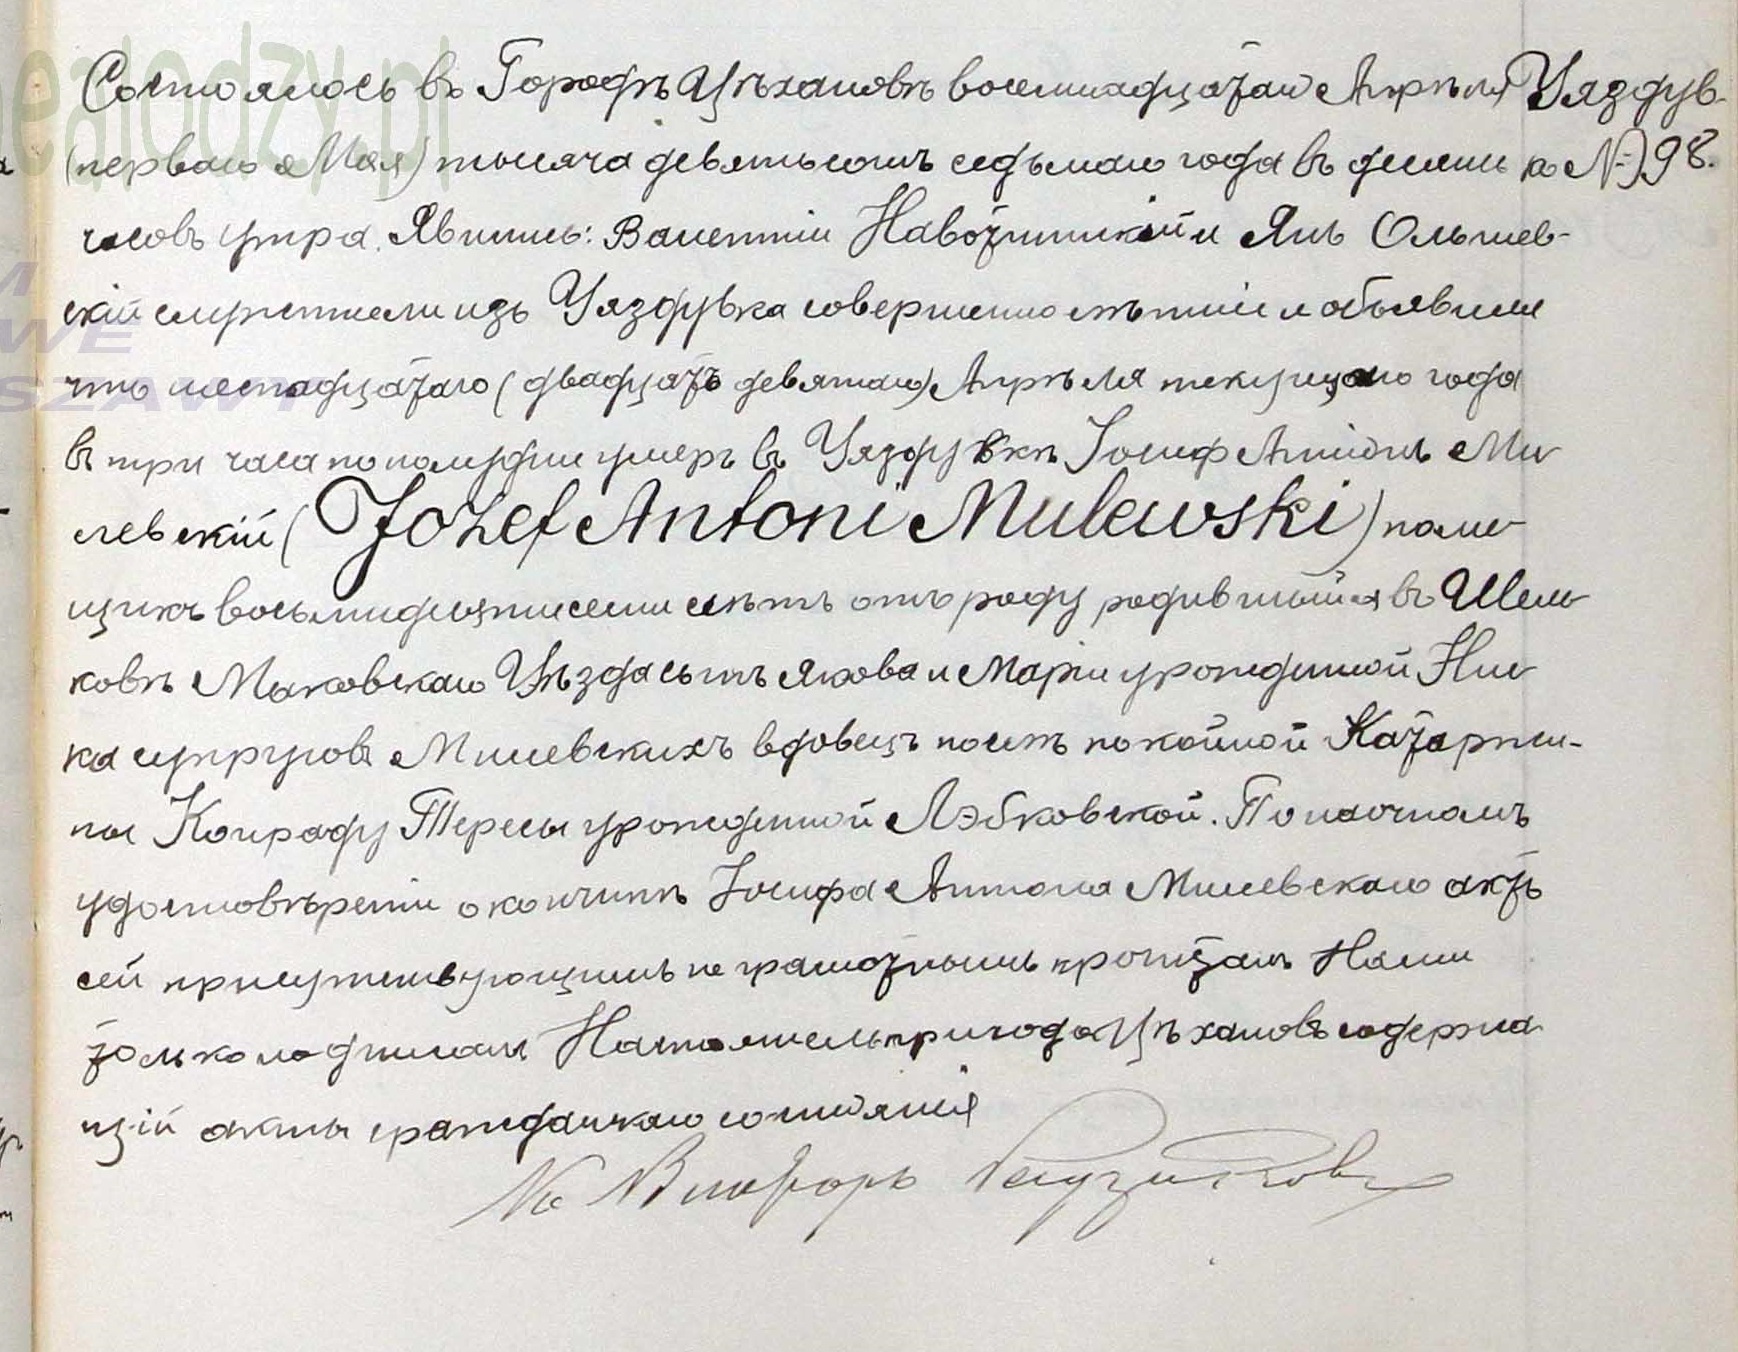 Состоялось въ Городѣ Цѣхановѣ восемнадцатаго Апрѣля Уяздув-
(перваго Мая) тысяча девятьсотъ седьмаго года въ десять ка №98.
часовъ утра. Явились: Валентій и Янъ Ольшев-
скій служители изъ Уяздувка совершеннолѣтніе и объявили
что шестнадцатаго (двадцать девятаго) Апрѣля текущаго года
въ три часа пополудни умеръ въ Уяздувкѣ Іосифъ Антонъ Ми
левскій (Józef Antoni Milewski) поме
щикъ восьмидесяти семи лѣтъ отъ роду родившійся въ Шель
ковѣ Маковскаго Уѣзда сынъ Якова и Маріи урожденной Ниц
ка супруговъ Милевскихъ вдовецъ послѣ покойной Катаржи-
ны Конраду Тересы урожденной Лэбковской. По наочномъ
удостовѣреніи о кончинѣ Іосифа Антона Милевскаго актъ
сей присутствующимъ неграмотнымъ прочитанъ Нами
только подписанъ Настоятель прихода Цѣхановъ содержа
щій акты гражданскаго состоянія
Кс Викторъ